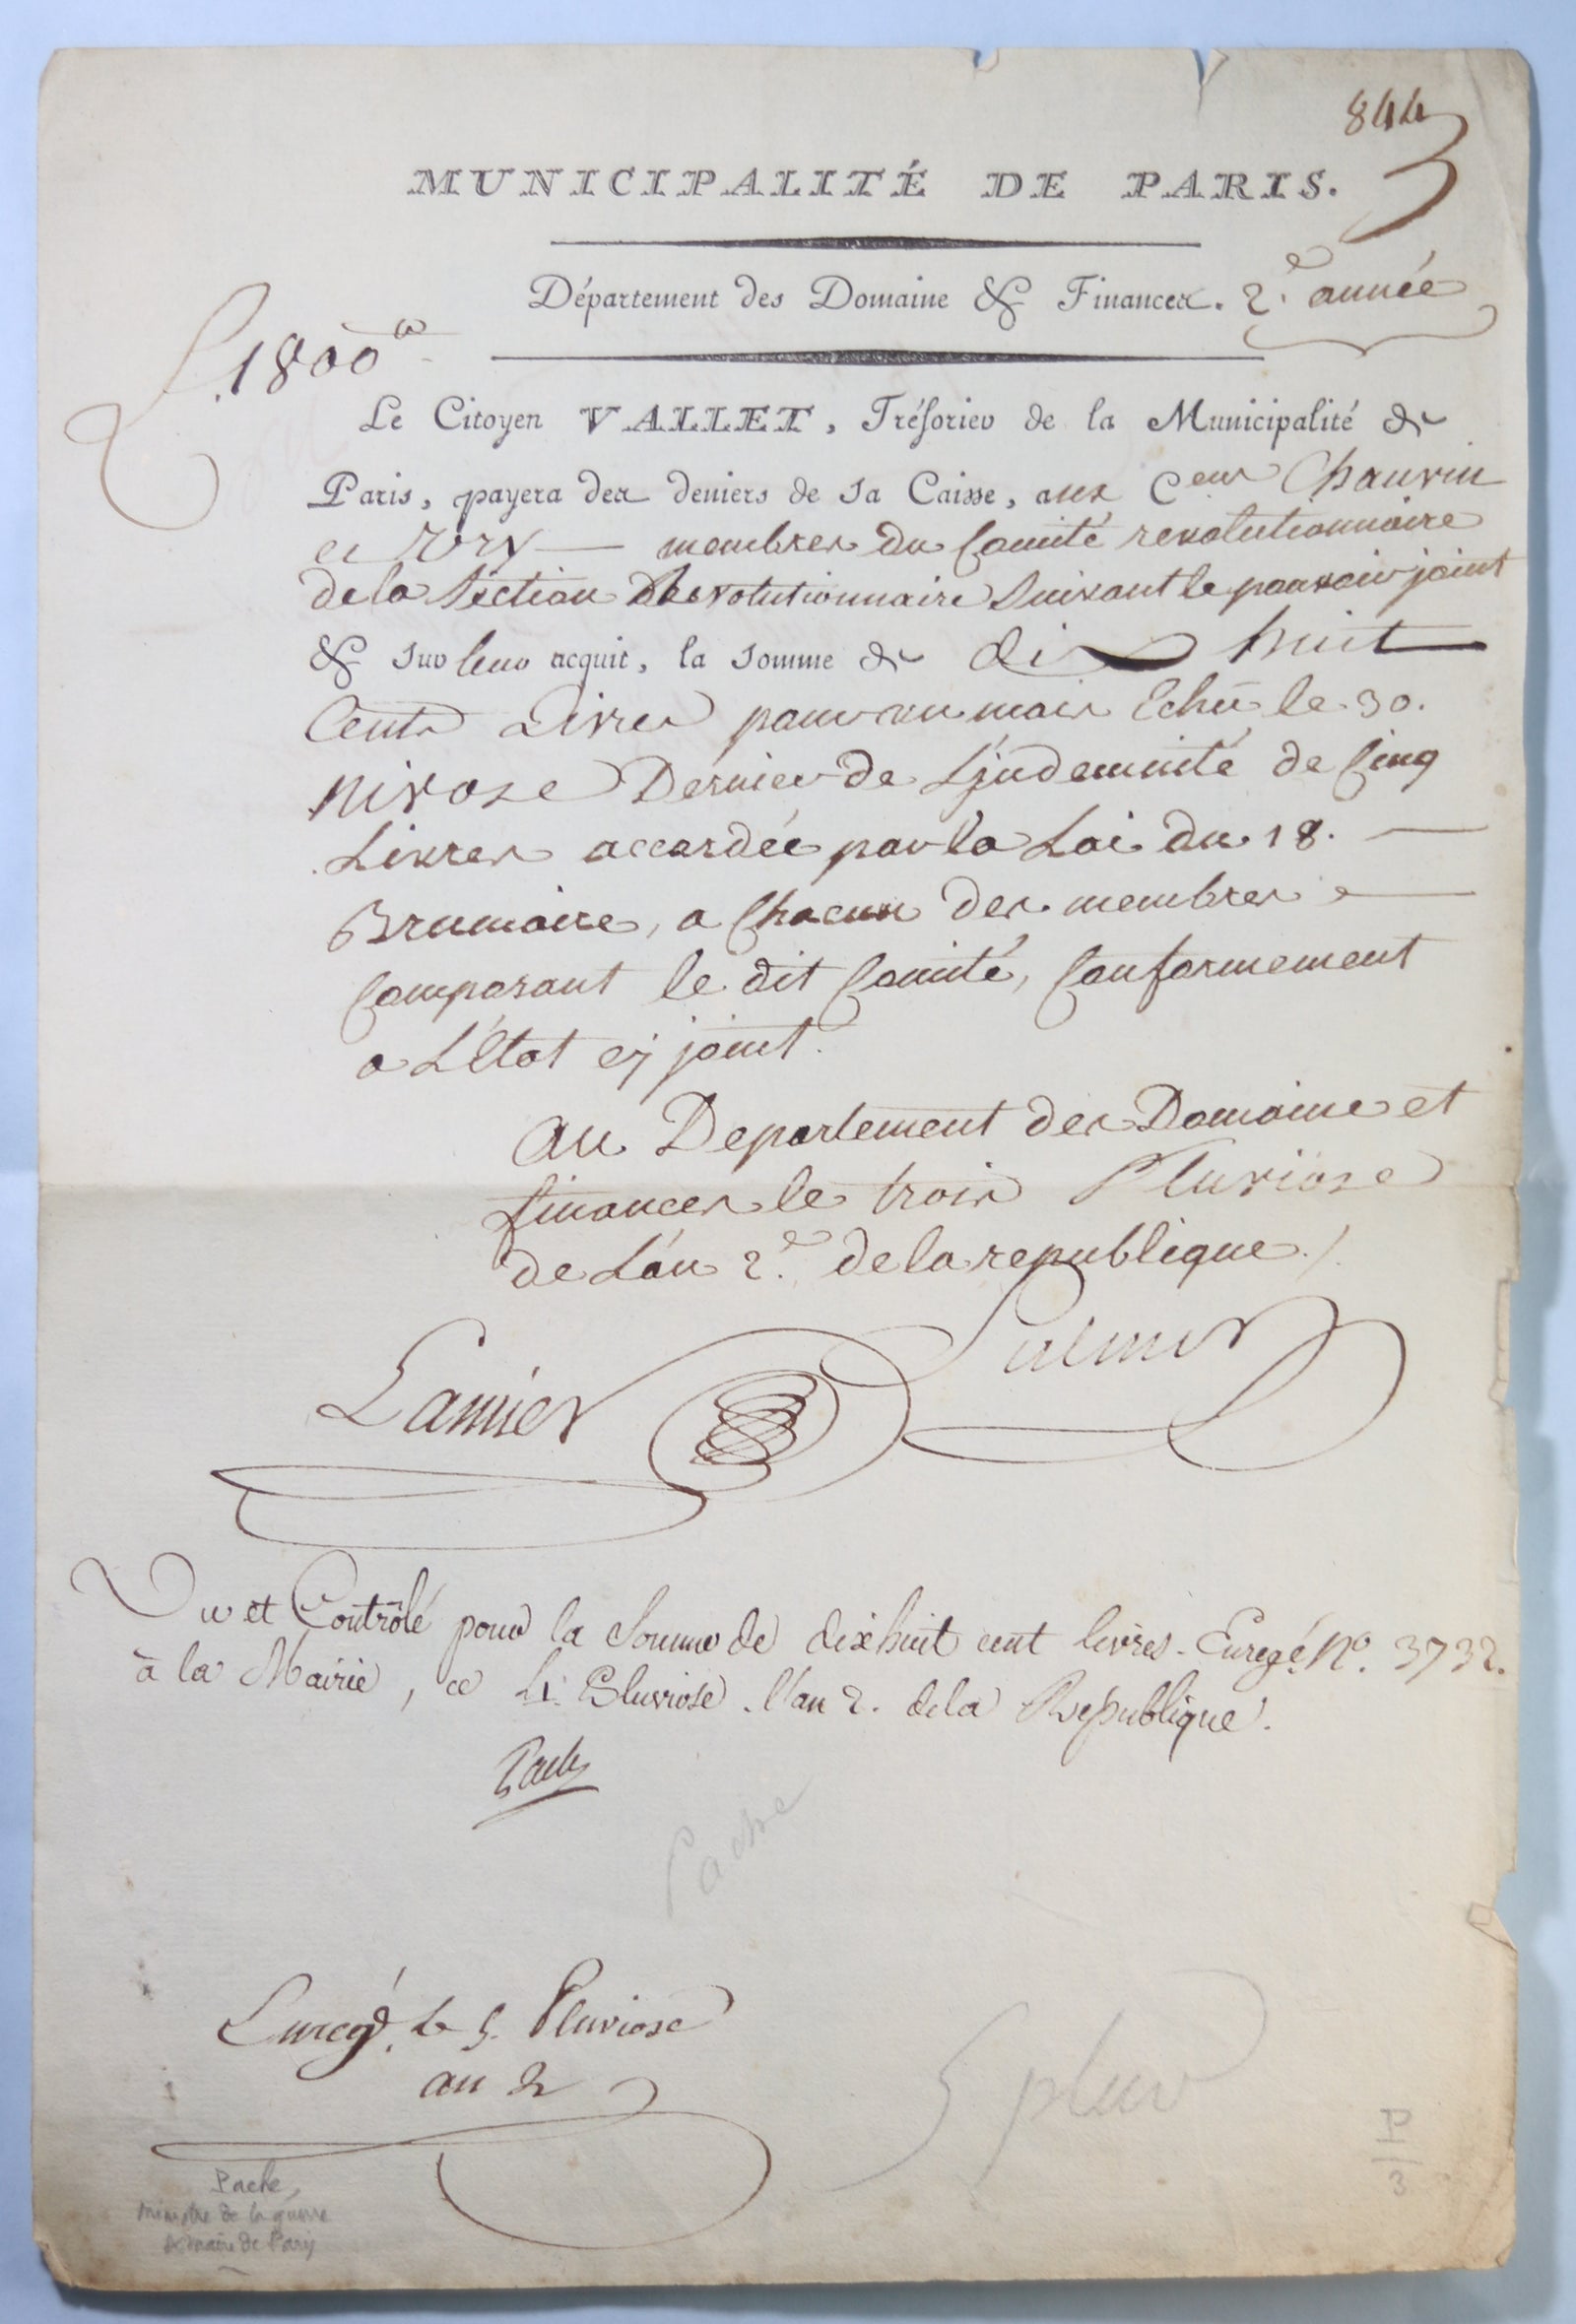 844
MUNICIPALITÉ DE PARIS.
Département des Domaine & Finances. 2.e année
1800tt
Le Citoyen VALLET, Trésorier de la Municipalité de
Paris, payera des deniers de sa Caisse, aux Ceus Chauvin
et membres du Comité revolutionnaire
de la Section Revolutionnaire Suivant le pouvoir joint
& sur leur acquit, la somme de dix huit
Cents Livres pour un mois Echu le 30.
Nivose Dernier de L'jndemnité de Cinq
Livres accordée par la Loi du 18.
Brumaire, a Chacun des membres
Composant le dit Comité, Conformement
a L'Etat cy joint.
Au Departement des Domaine et
finances le trois Pluviose
de L'an 2.e de la republique./.
Lamier Salmon
Vu et Contrôlé pour la Somme de dix huit cent livres. Enregé. No. 3732.
à la Mairie, ce 4. Pluviose. l'an 2. de la Republique.
Pache
Pache
Enregé. le 5. Pluviose
an 2
5 pluv
P
3
Pache,
ministre de la guerre
& maire de Paris